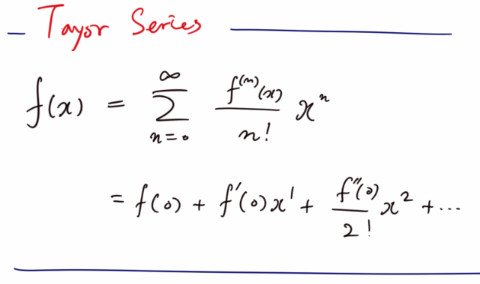 Tayor Series
f(x) = ∞ Σ n=0 f⁽ⁿ⁾(x) / n! xⁿ
= f(0) + f′(0)x¹ + f″(0) / 2! x² + ...